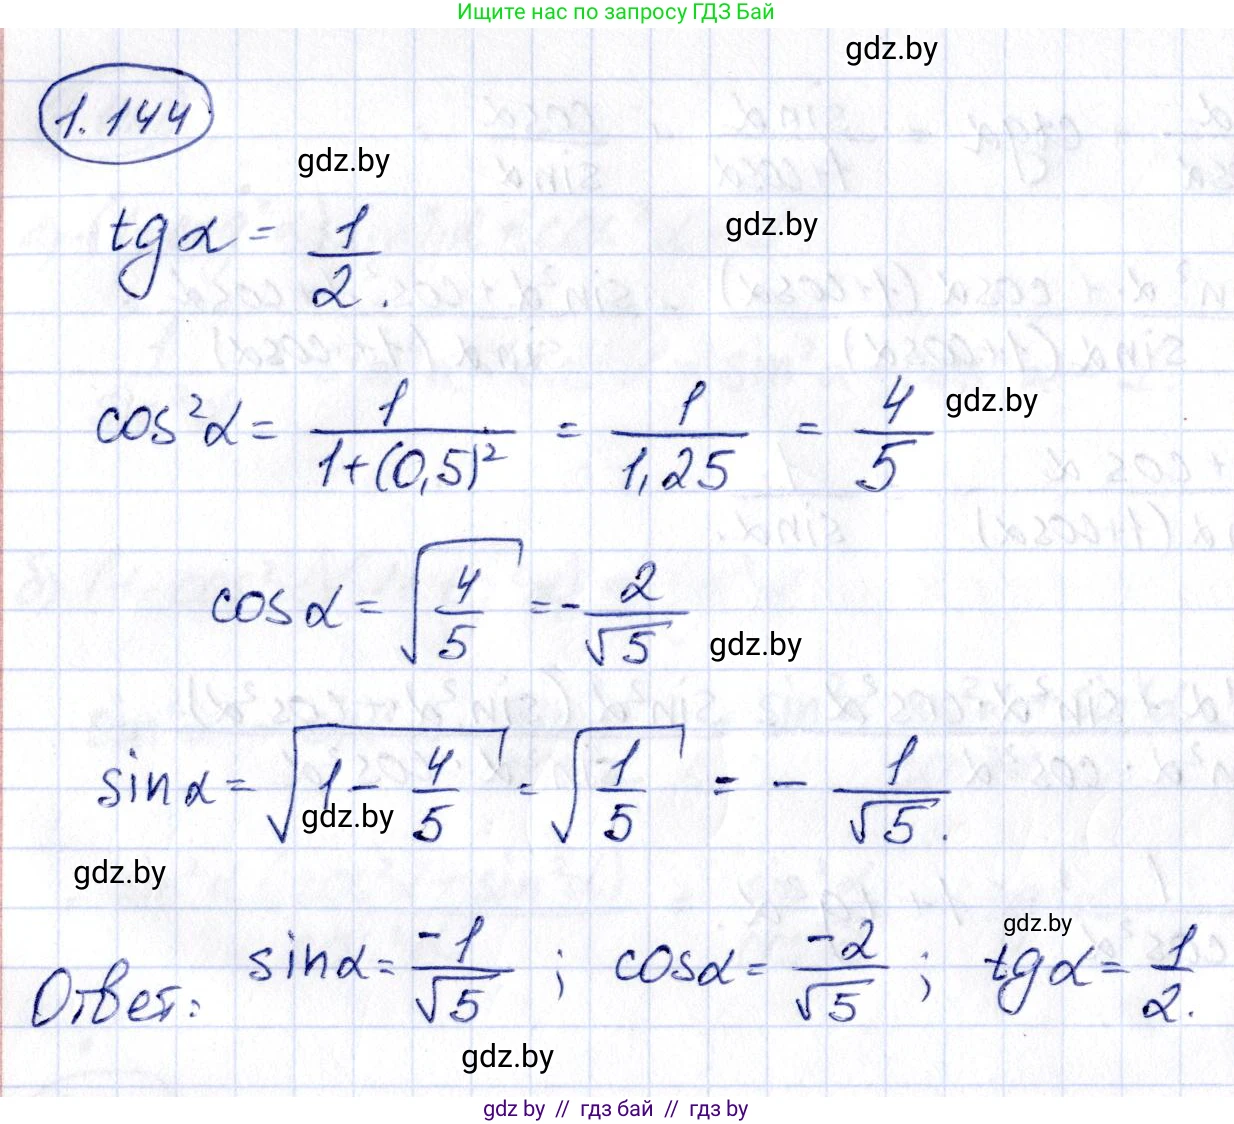 Ищите нас по запросу ГДЗ Бай
gdz.by
1.144
gdz.by
gdz.by
tg α = 1/2.
cos²α = 1/(1+(0,5)²) = 1/1,25 = 4/5
gdz.by
cos α = √(4/5) = -2/√5
gdz.by
sin α = √(1 - 4/5) = √(1/5) = - 1/√5.
gdz.by
gdz.by
gdz.by
Ответ: sin α = -1/√5 ; cos α = -2/√5 ; tg α = 1/2.
gdz.by
gdz.by // гдз бай // гдз by